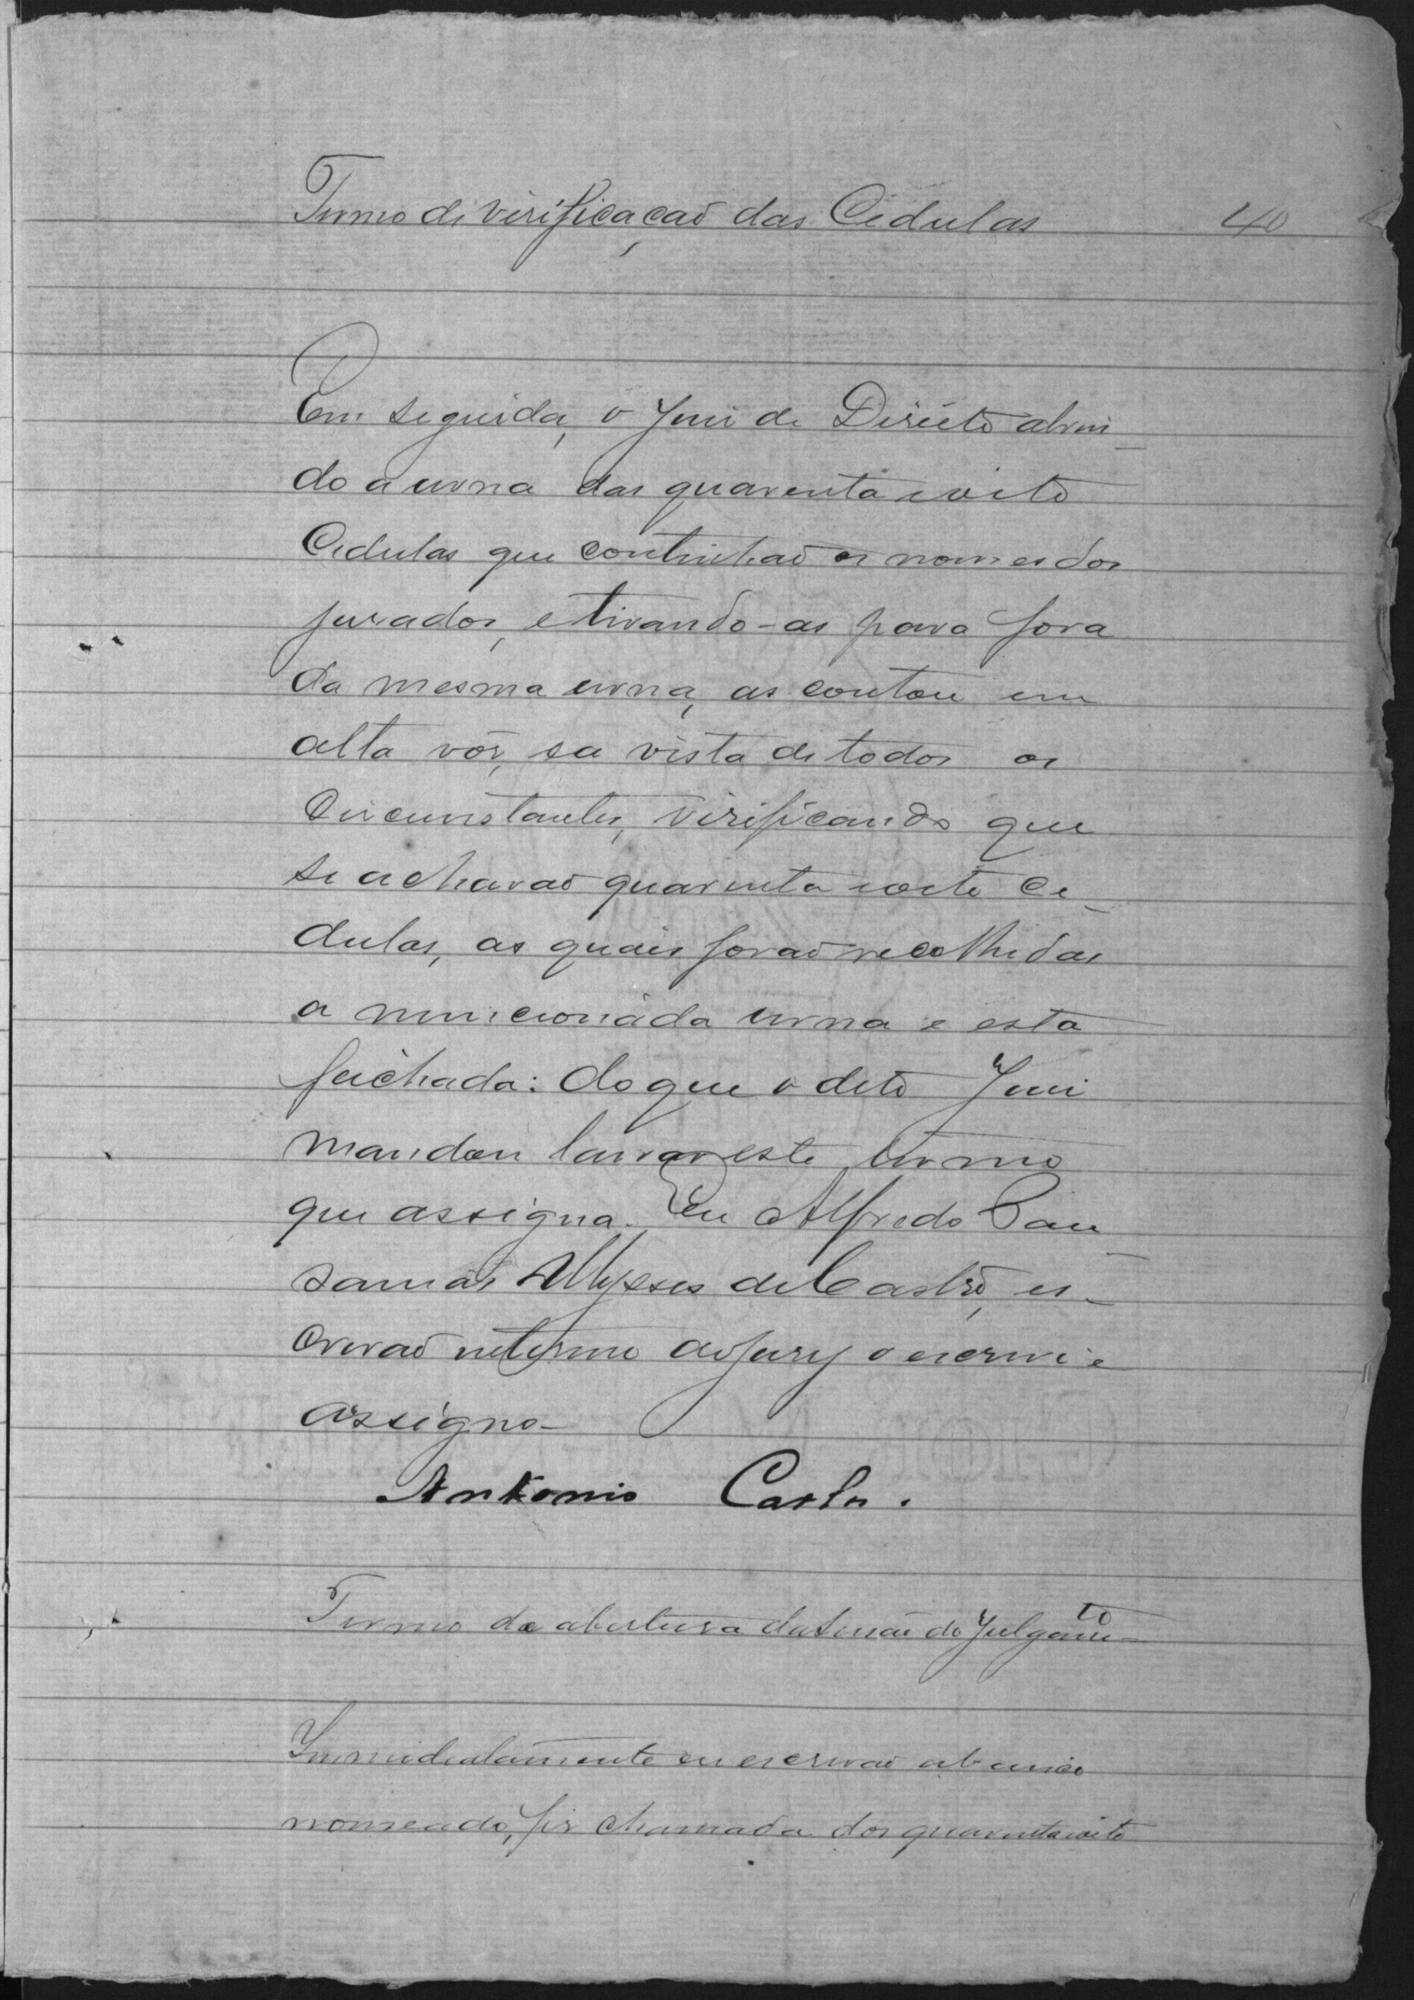 Termo de verificação das Cedulas 40
Em seguida, o Juiz de Direito abrin-
do a urna das quarenta e oito
Cedulas que continhaõ os nomes dos
jurados, e tirando-as para fora
da mesma urna, as contou em
alta vóz, e a vista de todos os
circunstantes, verificando que
se acharaõ quarenta e oito ce-
dulas, as quais foraõ recolhidas
a mencionada urna e esta
feichada: do que o dito Juiz
mandou lavrar este termo
que assigna. Eu Alfredo
Ulysses de Castro, es-
crivaõ do Jury o escrevi e
assigno-
Antonio Carlos.
Termo da abertura da sessaõ do Julgamto
Immediatamente eu escrivaõ abaixo
nomeado, fiz chamada dos quarenta e oito